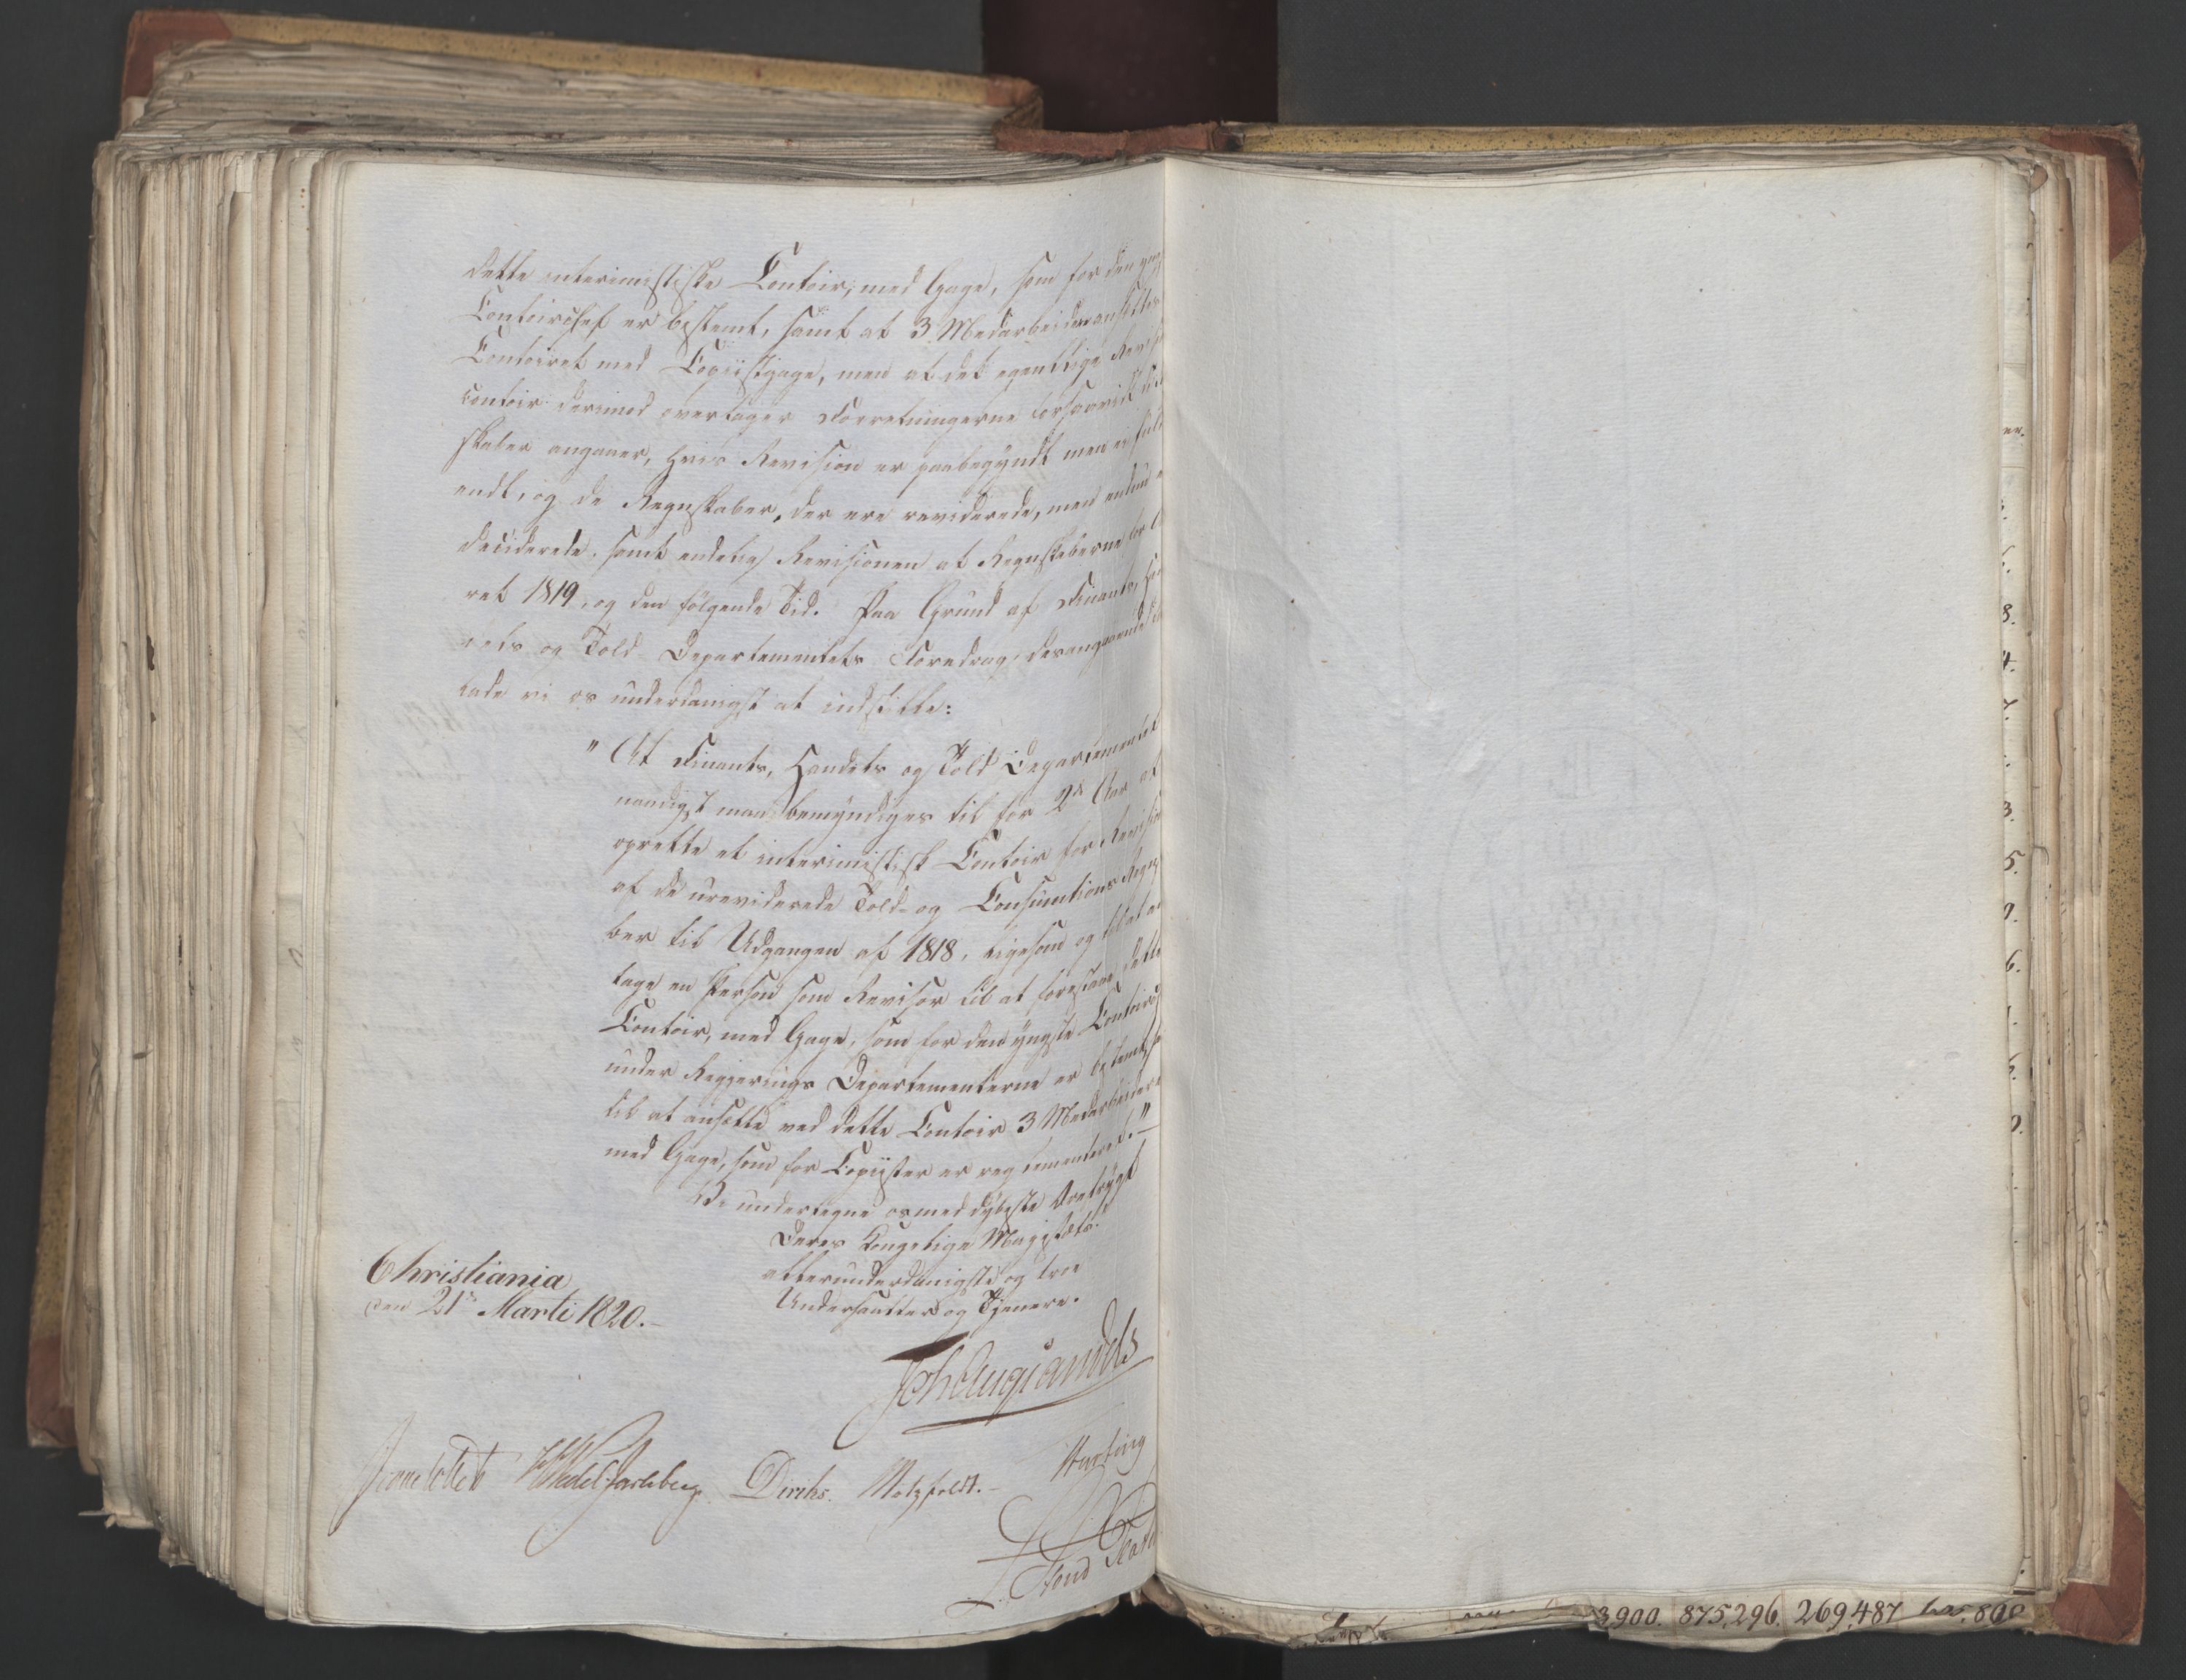 dette interimistiske Contoir, med Gage, som for den yng
Contoirchef er bestemt, samt at 3 Medarbeidere ansættes
Contoiret med Copiistgage, men at det egentlige Revis
contoir derimod overtager Forretningerne forsaavidt de
skaber angaaer, hvis Revision er paabegyndt men ei fuld
endt, og de Regnskaber, der ere reviderede, men endnu e
deciderede, samt endelig Revisionen af Regnskaberne for A
ret 1819, og den følgende Tid. Paa Grund af Finants, Han
dels og Told Departementets Foredrag, desangaaende
lade vi os underdanigst at indstille:
"At Finants, Handels og Told Departementet
naadigst maa bemyndiges til for 2de Aar at
oprette et interimistisk Contoir for Revision
af de ureviderede Told- og Consumtions Regns
ber til Udgangen af 1818, ligesom og til at an
tage en Person som Revisor til at forestaae dette
Contoir, med Gage, som for den yngste Contoirch
under Regjerings Departementerne er bestemt, sa
til at ansætte ved dette Contoir 3 Medarbeidere
med Gage, som for Copiister er reglementeret."
Vi undertegne os med dybeste Ærefrygt
Deres Kongelige Majestæts
allerunderdanigste og troe
Undersaatter og Tjenere.
Christiania
den 21de Marti 1820.
Joh Aug Sandels
Jonas Collett HWedel Jarlsberg Diriks. Motzfeldt.
3,900. 875,296. 269,487